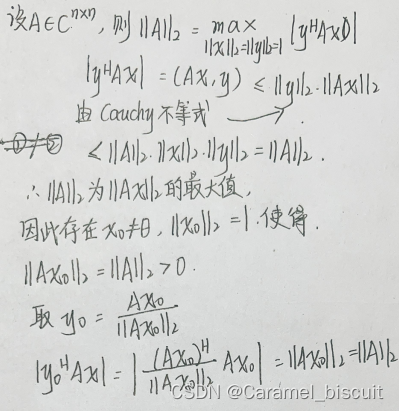 设A∈Cⁿˣⁿ, 则||A||₂ = max |yᴴAx|
||x||₂=||y||₂=1
|yᴴAx| = (Ax, y) ≤ ||y||₂·||Ax||₂
由Cauchy不等式
≤ ||A||₂·||x||₂·||y||₂ = ||A||₂.
∴ ||A||₂为||Ax||₂的最大值,
因此存在x₀≠θ, ||x₀||₂=1.使得.
||Ax₀||₂ = ||A||₂ > 0.
取 y₀ = Ax₀ / ||Ax₀||₂
|y₀ᴴAx| = |(Ax₀)ᴴ / ||Ax₀||₂ Ax₀| = ||Ax₀||₂ = ||A||₂
CSDN @Caramel_biscuit